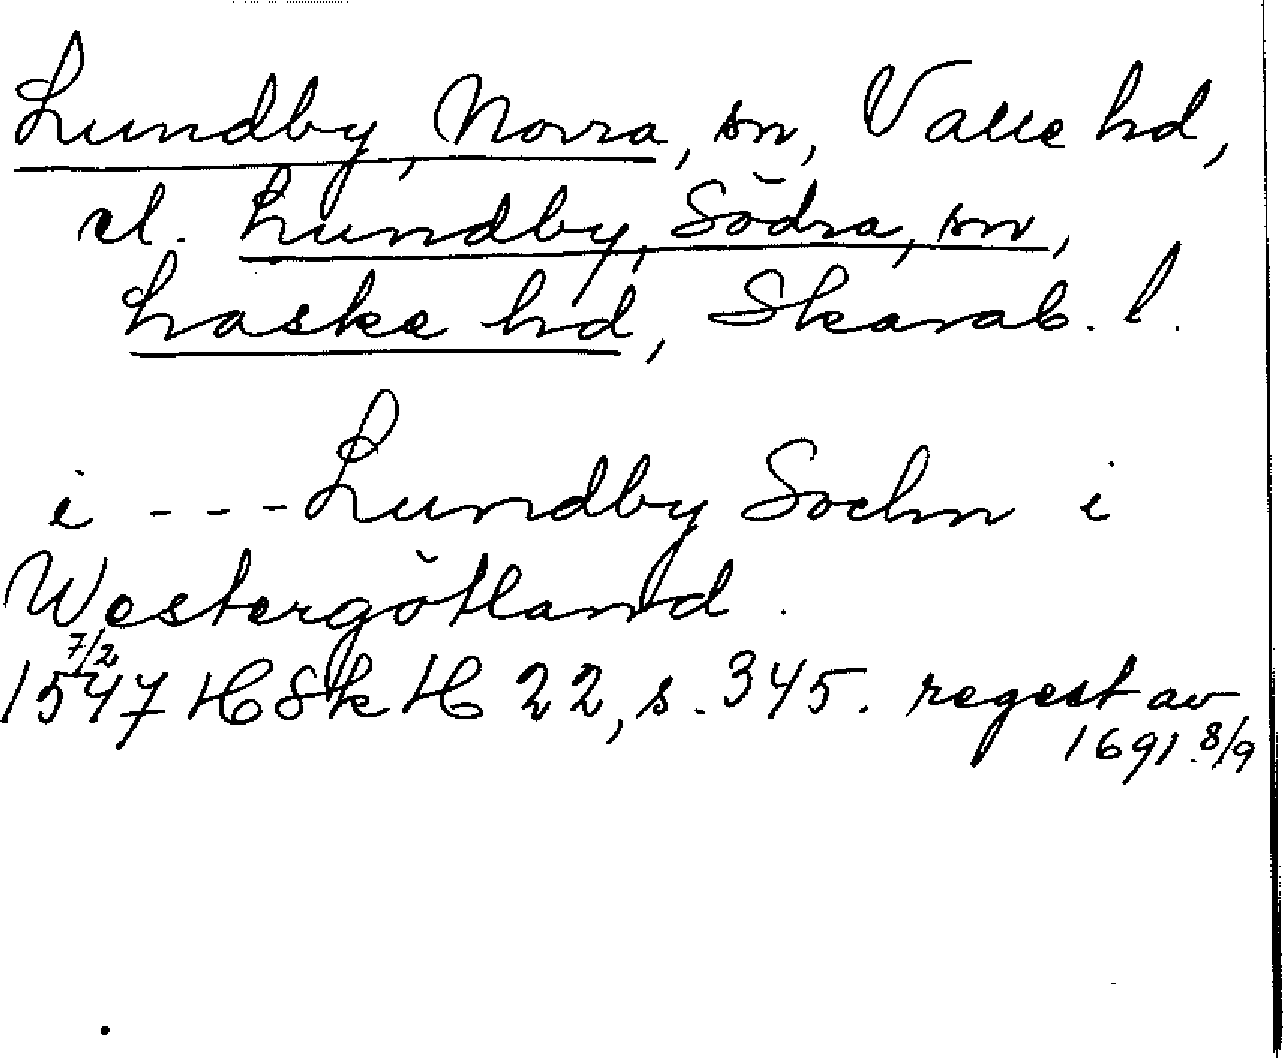 Lundby, Norra, sn, Valle hd,
el. Lundby, Södra, sn,
Laske hd, Skarab. l.
i - - - Lundby Sochn i
Westergötland.
1547 7/2 HSkH 22, s. 345. regest av
1691. 8/9